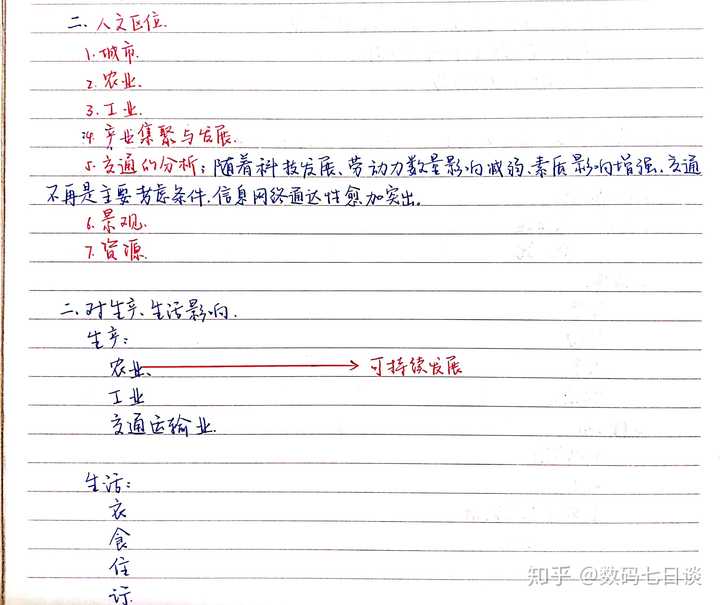 二、人文区位.
1.城市.
2.农业.
3.工业.
4.产业集聚与发展.
5.交通的分析：随着科技发展、劳动力数量影响减弱、素质影响增强、交通
不再是主要考虑条件.信息网络通达性愈加突出.
6.景观.
7.资源.
二、对生产、生活影响.
生产：
农业、→可持续发展
工业
交通运输业.
生活：
衣
食
住
行
知乎 @数码七日谈